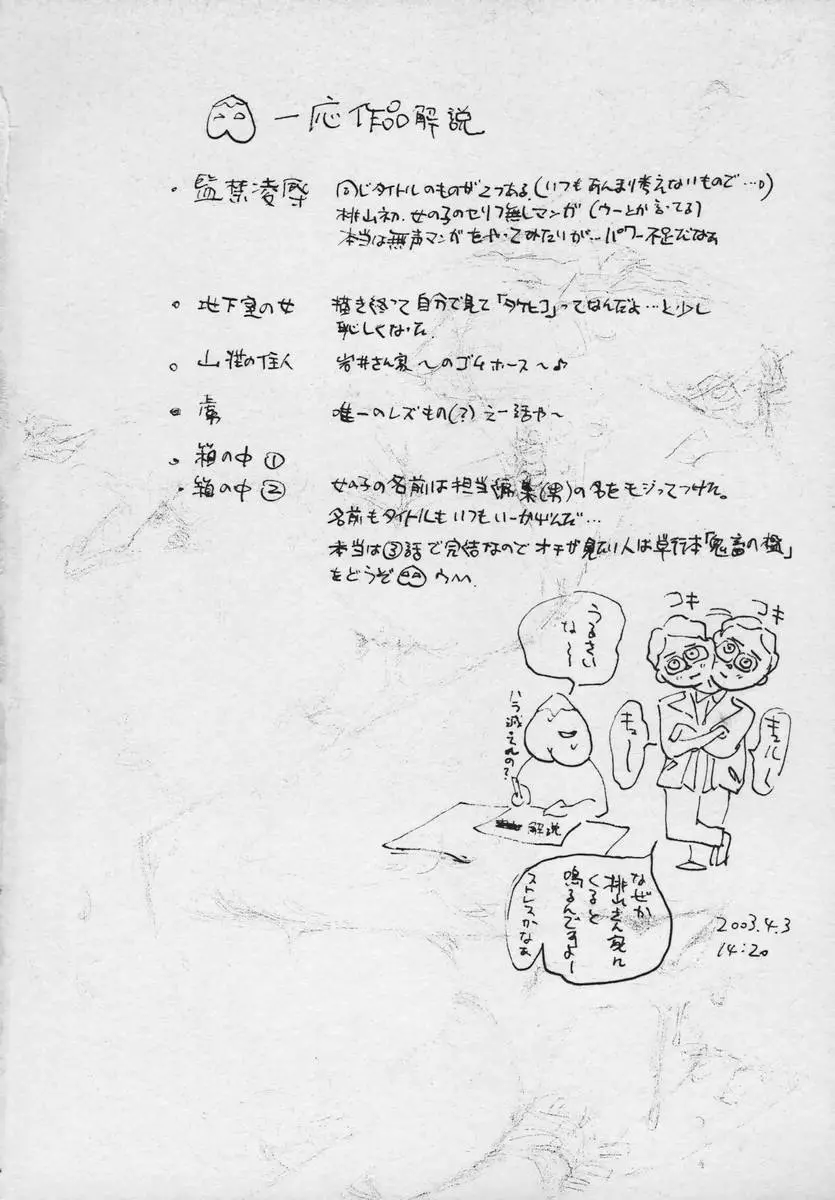 一応作品解説
・監禁凌辱 同じタイトルのものが2つある。(いつもあんまり考えないもので…。)
桃山初、女の子のセリフ無しマンガ(ウーとか言ってる)
本当は無声マンガをやってみたいが…パワー不足だなぁ
・地下室の女 描き終って自分で見て「タケヒコ」ってなんだよ…と少し
恥しくなった
・山荘の住人 岩井さん家〜のゴムホース〜♪
唯一のレズもの(?)えー話や〜
・箱の中①
・箱の中② 女の子の名前は担当編集(男)の名をモジってつけた。
名前もタイトルもいつもいーかげんだ…
本当は③話で完結なのでオチが見たい人は単行本「鬼畜の檻」
をどうぞ
うるさい
な〜〜
ハラ減ってんの?
コキ
コキ
キュー
キュルル〜
解説
なぜか
桃山さん家に
くると
鳴るんですよー
ストレスかなぁ
2003.4.3
14:20